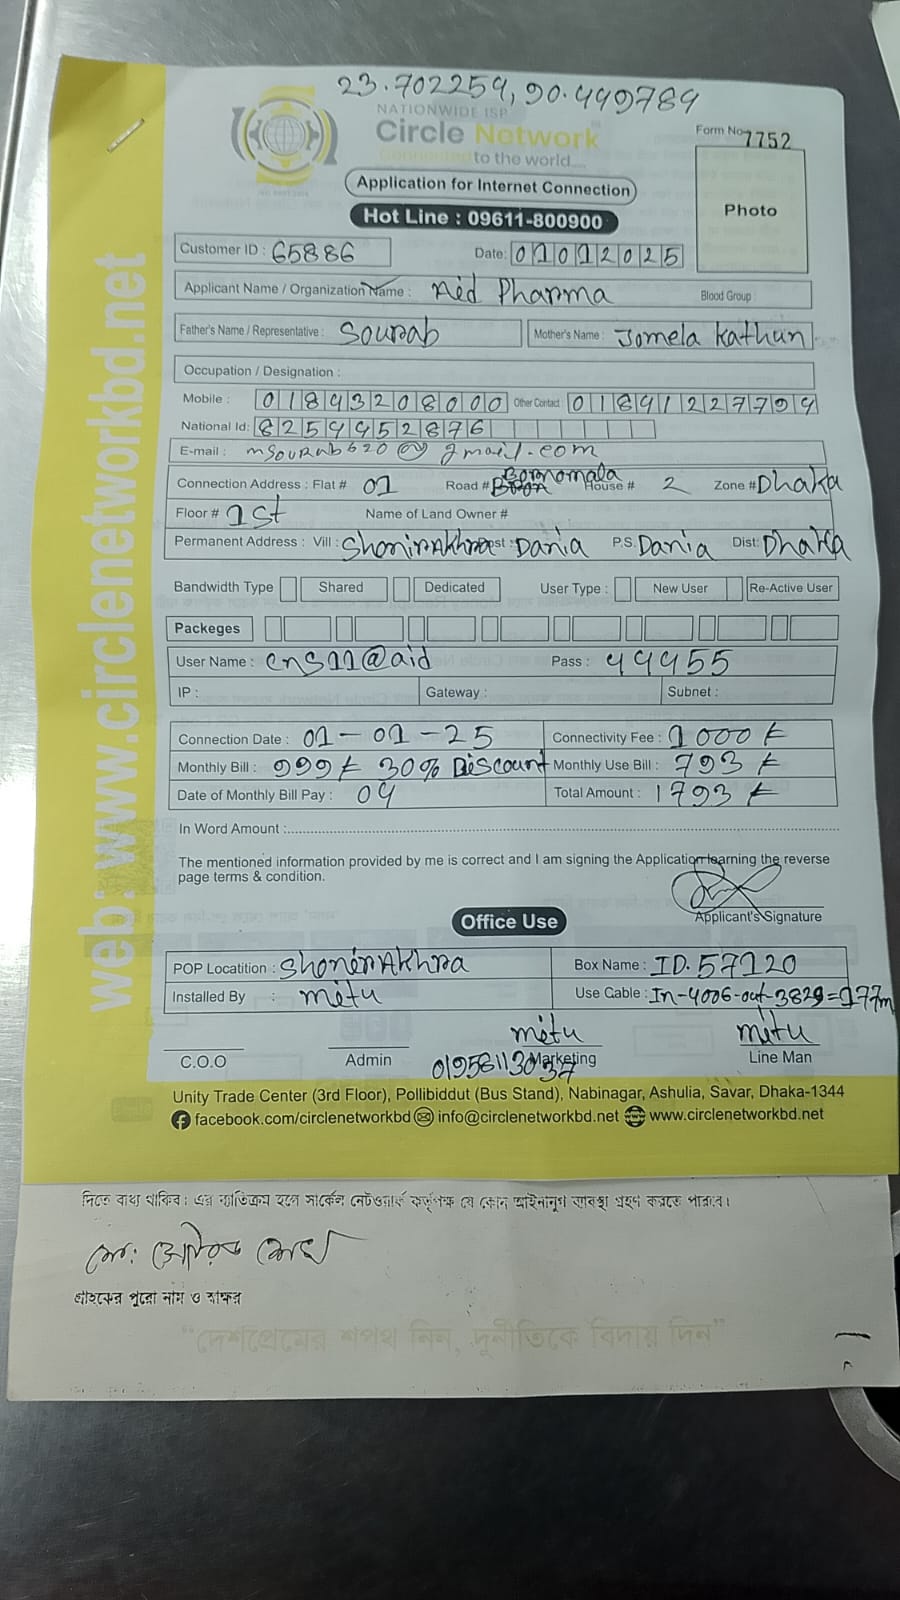 23.702259, 90.449789
NATIONWIDE ISP
Circle Network
Connected to the world....
Form No 7752
Application for Internet Connection
Photo
Hot Line : 09611-800900
Customer ID : 65886 Date: 01012025
Applicant Name / Organization Name : Aid Pharma Blood Group
Father's Name / Representative : Sourab Mother's Name : Jomela Kathun
Occupation / Designation :
Mobile : 01843208000 Other Contact 01841227794
National Id: 8259452876
E-mail : msourab620@gmail.com
Connection Address : Flat # 01 Road # Bornomala House # 2 Zone # Dhaka
Floor # 1st Name of Land Owner #
Permanent Address : Vill : ShonirAkhra Post : Dania P.S. Dania Dist: Dhaka
Bandwidth Type Shared Dedicated User Type : New User Re-Active User
Packeges
User Name : cns11@aid Pass : 44455
IP : Gateway : Subnet :
Connection Date : 01-01-25 Connectivity Fee : 1000 ৳
Monthly Bill : 999 ৳ 30% Discount Monthly Use Bill : 793 ৳
Date of Monthly Bill Pay : 04 Total Amount : 1793 ৳
In Word Amount :
The mentioned information provided by me is correct and I am signing the Application learning the reverse
page terms & condition.
Applicant's Signature
Office Use
POP Locatition : ShonirAkhra Box Name : ID. 57120
Installed By : mitu Use Cable : In-4006-out-3829=177m
mitu mitu
C.O.O Admin Marketing Line Man
01958113037
Unity Trade Center (3rd Floor), Pollibiddut (Bus Stand), Nabinagar, Ashulia, Savar, Dhaka-1344
facebook.com/circlenetworkbd info@circlenetworkbd.net www.circlenetworkbd.net
web: www.circlenetworkbd.net
দিতে বাধ্য থাকিব। এর ব্যতিক্রম হলে সার্কেল নেটওয়ার্ক কর্তৃপক্ষ যে কোন আইনানুগ ব্যবস্থা গ্রহণ করতে পারবে।
মো: সৌরভ
গ্রাহকের পুরো নাম ও স্বাক্ষর
“দেশপ্রেমের শপথ নিন, দুর্নীতিকে বিদায় দিন”